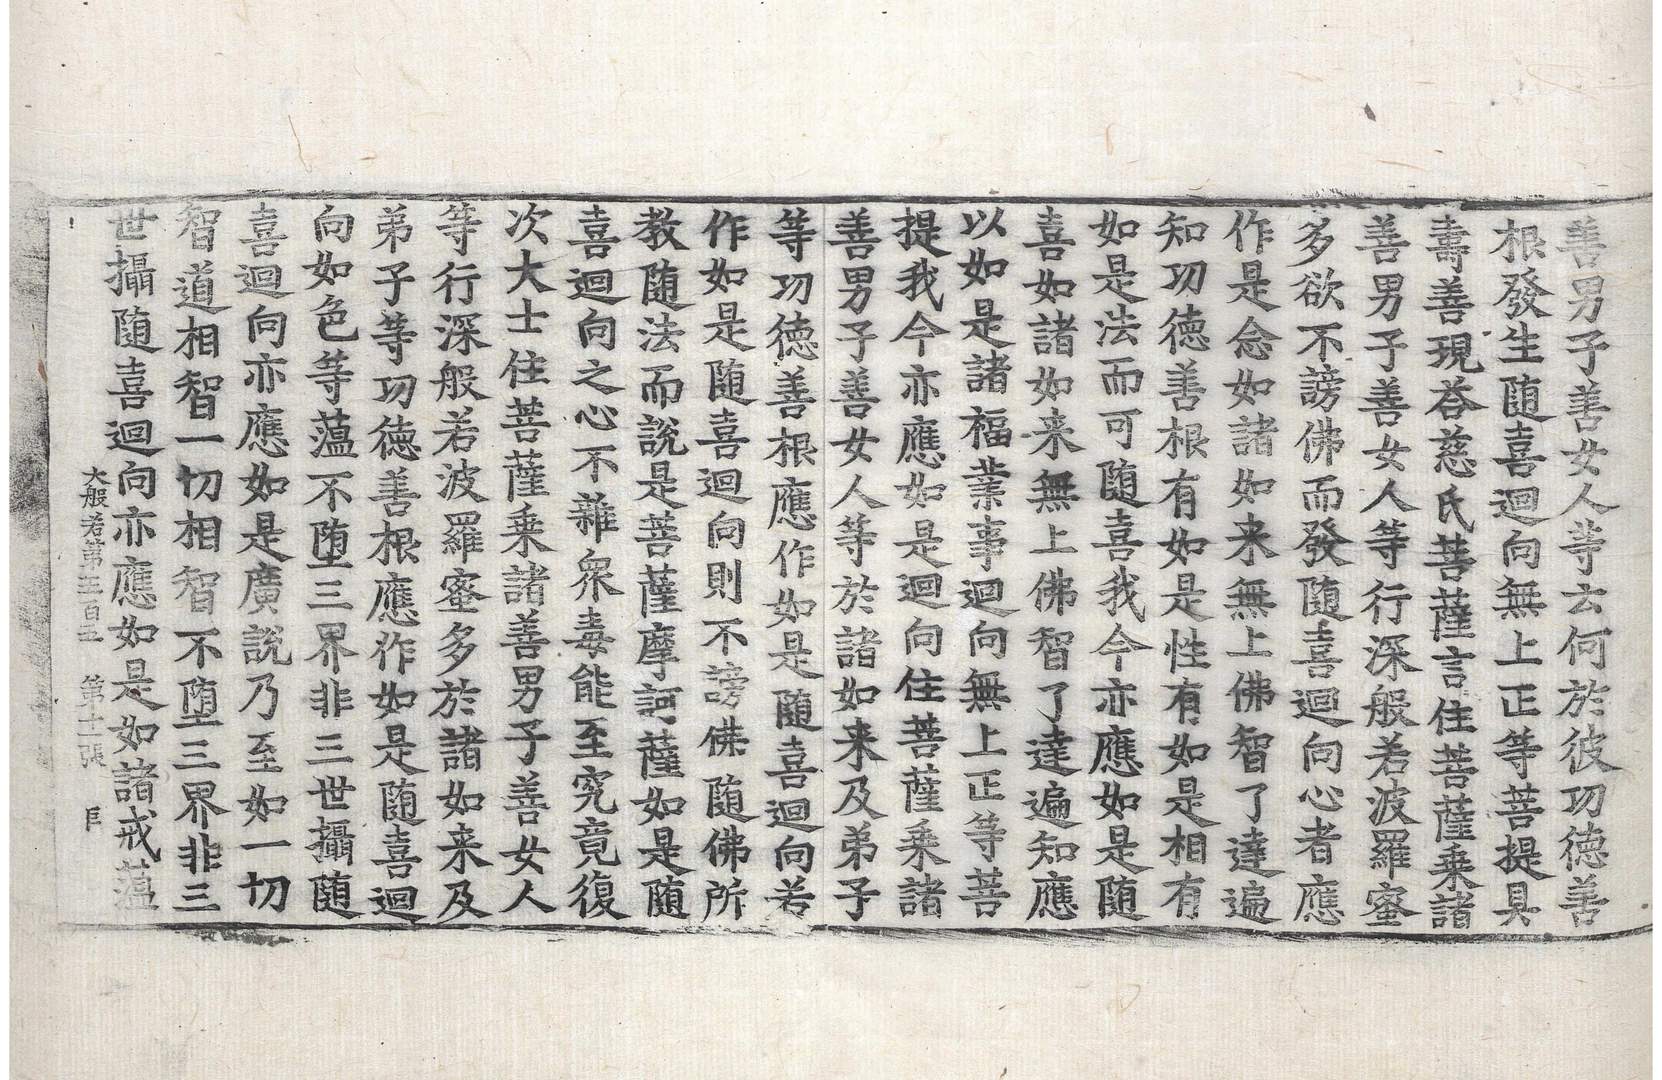 善男子善女人等云何於彼功德善
根發生随喜迴向無上正等菩提具
壽善現荅慈氏菩薩言住菩薩乗諸
善男子善女人等行深般若波羅蜜
多欲不謗佛而發随喜迴向心者應
作是念如諸如来無上佛智了達遍
知功德善根有如是性有如是相有
如是法而可随喜我今亦應如是随
喜如諸如来無上佛智了達遍知應
以如是諸福業事迴向無上正等菩
提我今亦應如是迴向住菩薩乗諸
善男子善女人等於諸如来及弟子
等功德善根應作如是随喜迴向若
作如是随喜迴向則不謗佛随佛所
教随法而說是菩薩摩訶薩如是随
喜迴向之心不雜衆毒能至究竟復
次大士住菩薩乗諸善男子善女人
等行深般若波羅蜜多於諸如来及
弟子等功徳善根應作如是随喜迴
向如色等薀不堕三界非三世攝随
喜迴向亦應如是廣說乃至如一切
智道相智一切相智不堕三界非三
世攝随喜迴向亦應如是如諸戒薀
大般若第五百五　第十二張